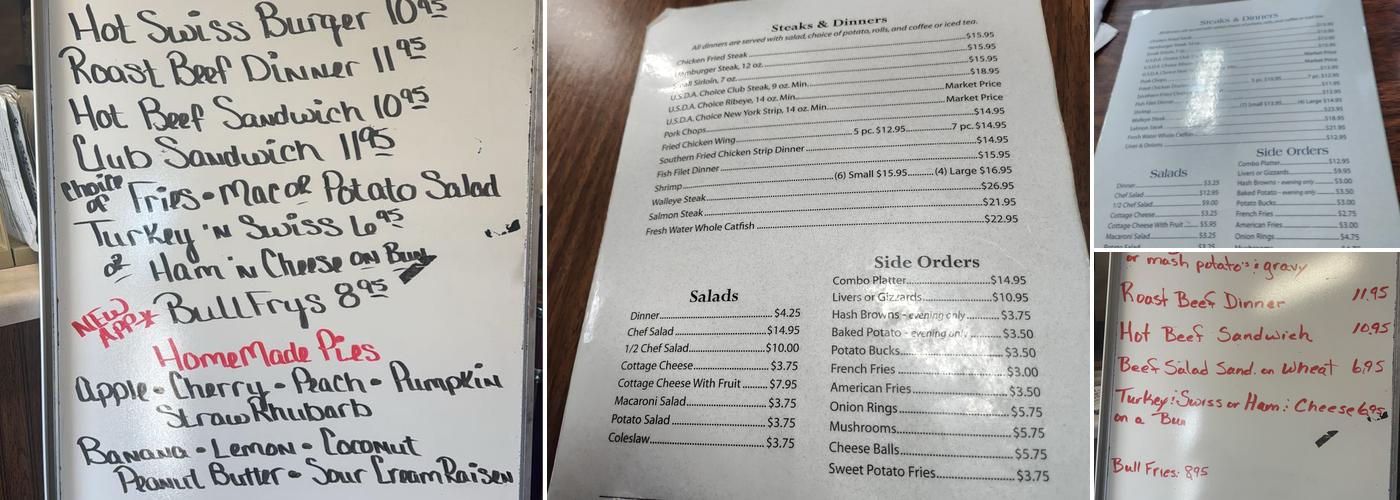 Hot Swiss Burger 10 95
Roast Beef Dinner 11 95
Hot Beef Sandwich 10 95
Club Sandwich 11 95
Choice of Fries - Mac or Potato Salad
Turkey 'N Swiss 6 95
or Ham 'N Cheese on Bun
NEW APP* BullFrys 8 95
HomeMade Pies
Apple - Cherry - Peach - Pumpkin
Straw Rhubarb
Banana - Lemon - Coconut
Peanut Butter - Sour Cream Raisen
Steaks & Dinners
All dinners are served with salad, choice of potato, rolls, and coffee or iced tea.
Chicken Fried Steak $15.95
Hamburger Steak, 12 oz. $15.95
Small Sirloin, 7 oz. $15.95
U.S.D.A. Choice Club Steak, 9 oz. Min. $18.95
U.S.D.A. Choice Ribeye, 14 oz. Min. Market Price
U.S.D.A. Choice New York Strip, 14 oz. Min. Market Price
Pork Chops $14.95
Fried Chicken Wing 5 pc. $12.95 7 pc. $14.95
Southern Fried Chicken Strip Dinner $14.95
Fish Filet Dinner $15.95
Shrimp (6) Small $15.95 (4) Large $16.95
Walleye Steak $26.95
Salmon Steak $21.95
Fresh Water Whole Catfish $22.95
Salads
Dinner $4.25
Chef Salad $14.95
1/2 Chef Salad $10.00
Cottage Cheese $3.75
Cottage Cheese With Fruit $7.95
Macaroni Salad $3.75
Potato Salad $3.75
Coleslaw $3.75
Side Orders
Combo Platter $14.95
Livers or Gizzards $10.95
Hash Browns - evening only $3.75
Baked Potato - evening only $3.50
Potato Bucks $3.50
French Fries $3.00
American Fries $3.50
Onion Rings $5.75
Mushrooms $5.75
Cheese Balls $5.75
Sweet Potato Fries $3.75
Steaks & Dinners
Market Price
Pork Chops
Fish Filet Dinner
Shrimp (7) Small $13.95 (4) Large $14.95
Walleye Steak $23.95
Salmon Steak $18.95
Fresh Water Whole Catfish $21.95
Liver & Onions $12.95
Salads
Dinner $3.25
Chef Salad $12.95
1/2 Chef Salad $9.00
Cottage Cheese $3.25
Cottage Cheese With Fruit $5.95
Macaroni Salad $3.25
Potato Salad $3.25
Side Orders
Combo Platter $12.95
Livers or Gizzards $9.95
Hash Browns - evening only $3.00
Baked Potato - evening only $3.50
Potato Bucks $3.00
French Fries $2.75
American Fries $3.00
Onion Rings $4.75
or mash potato's & gravy
Roast Beef Dinner 11.95
Hot Beef Sandwich 10.95
Beef Salad Sand. on Wheat 6.95
Turkey & Swiss or Ham & Cheese 6.95
on a Bun
Bull Fries 8.95